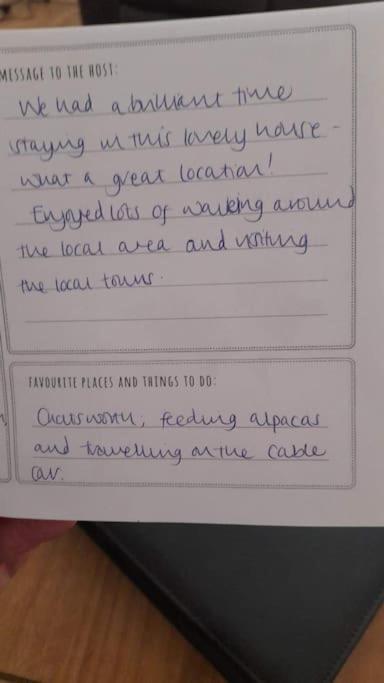 MESSAGE TO THE HOST:
We had a brilliant time
staying in this lovely house -
what a great location!
Enjoyed lots of walking around
the local area and visiting
the local towns.
FAVOURITE PLACES AND THINGS TO DO:
Chatsworth, feeding alpacas
and travelling on the cable
car.